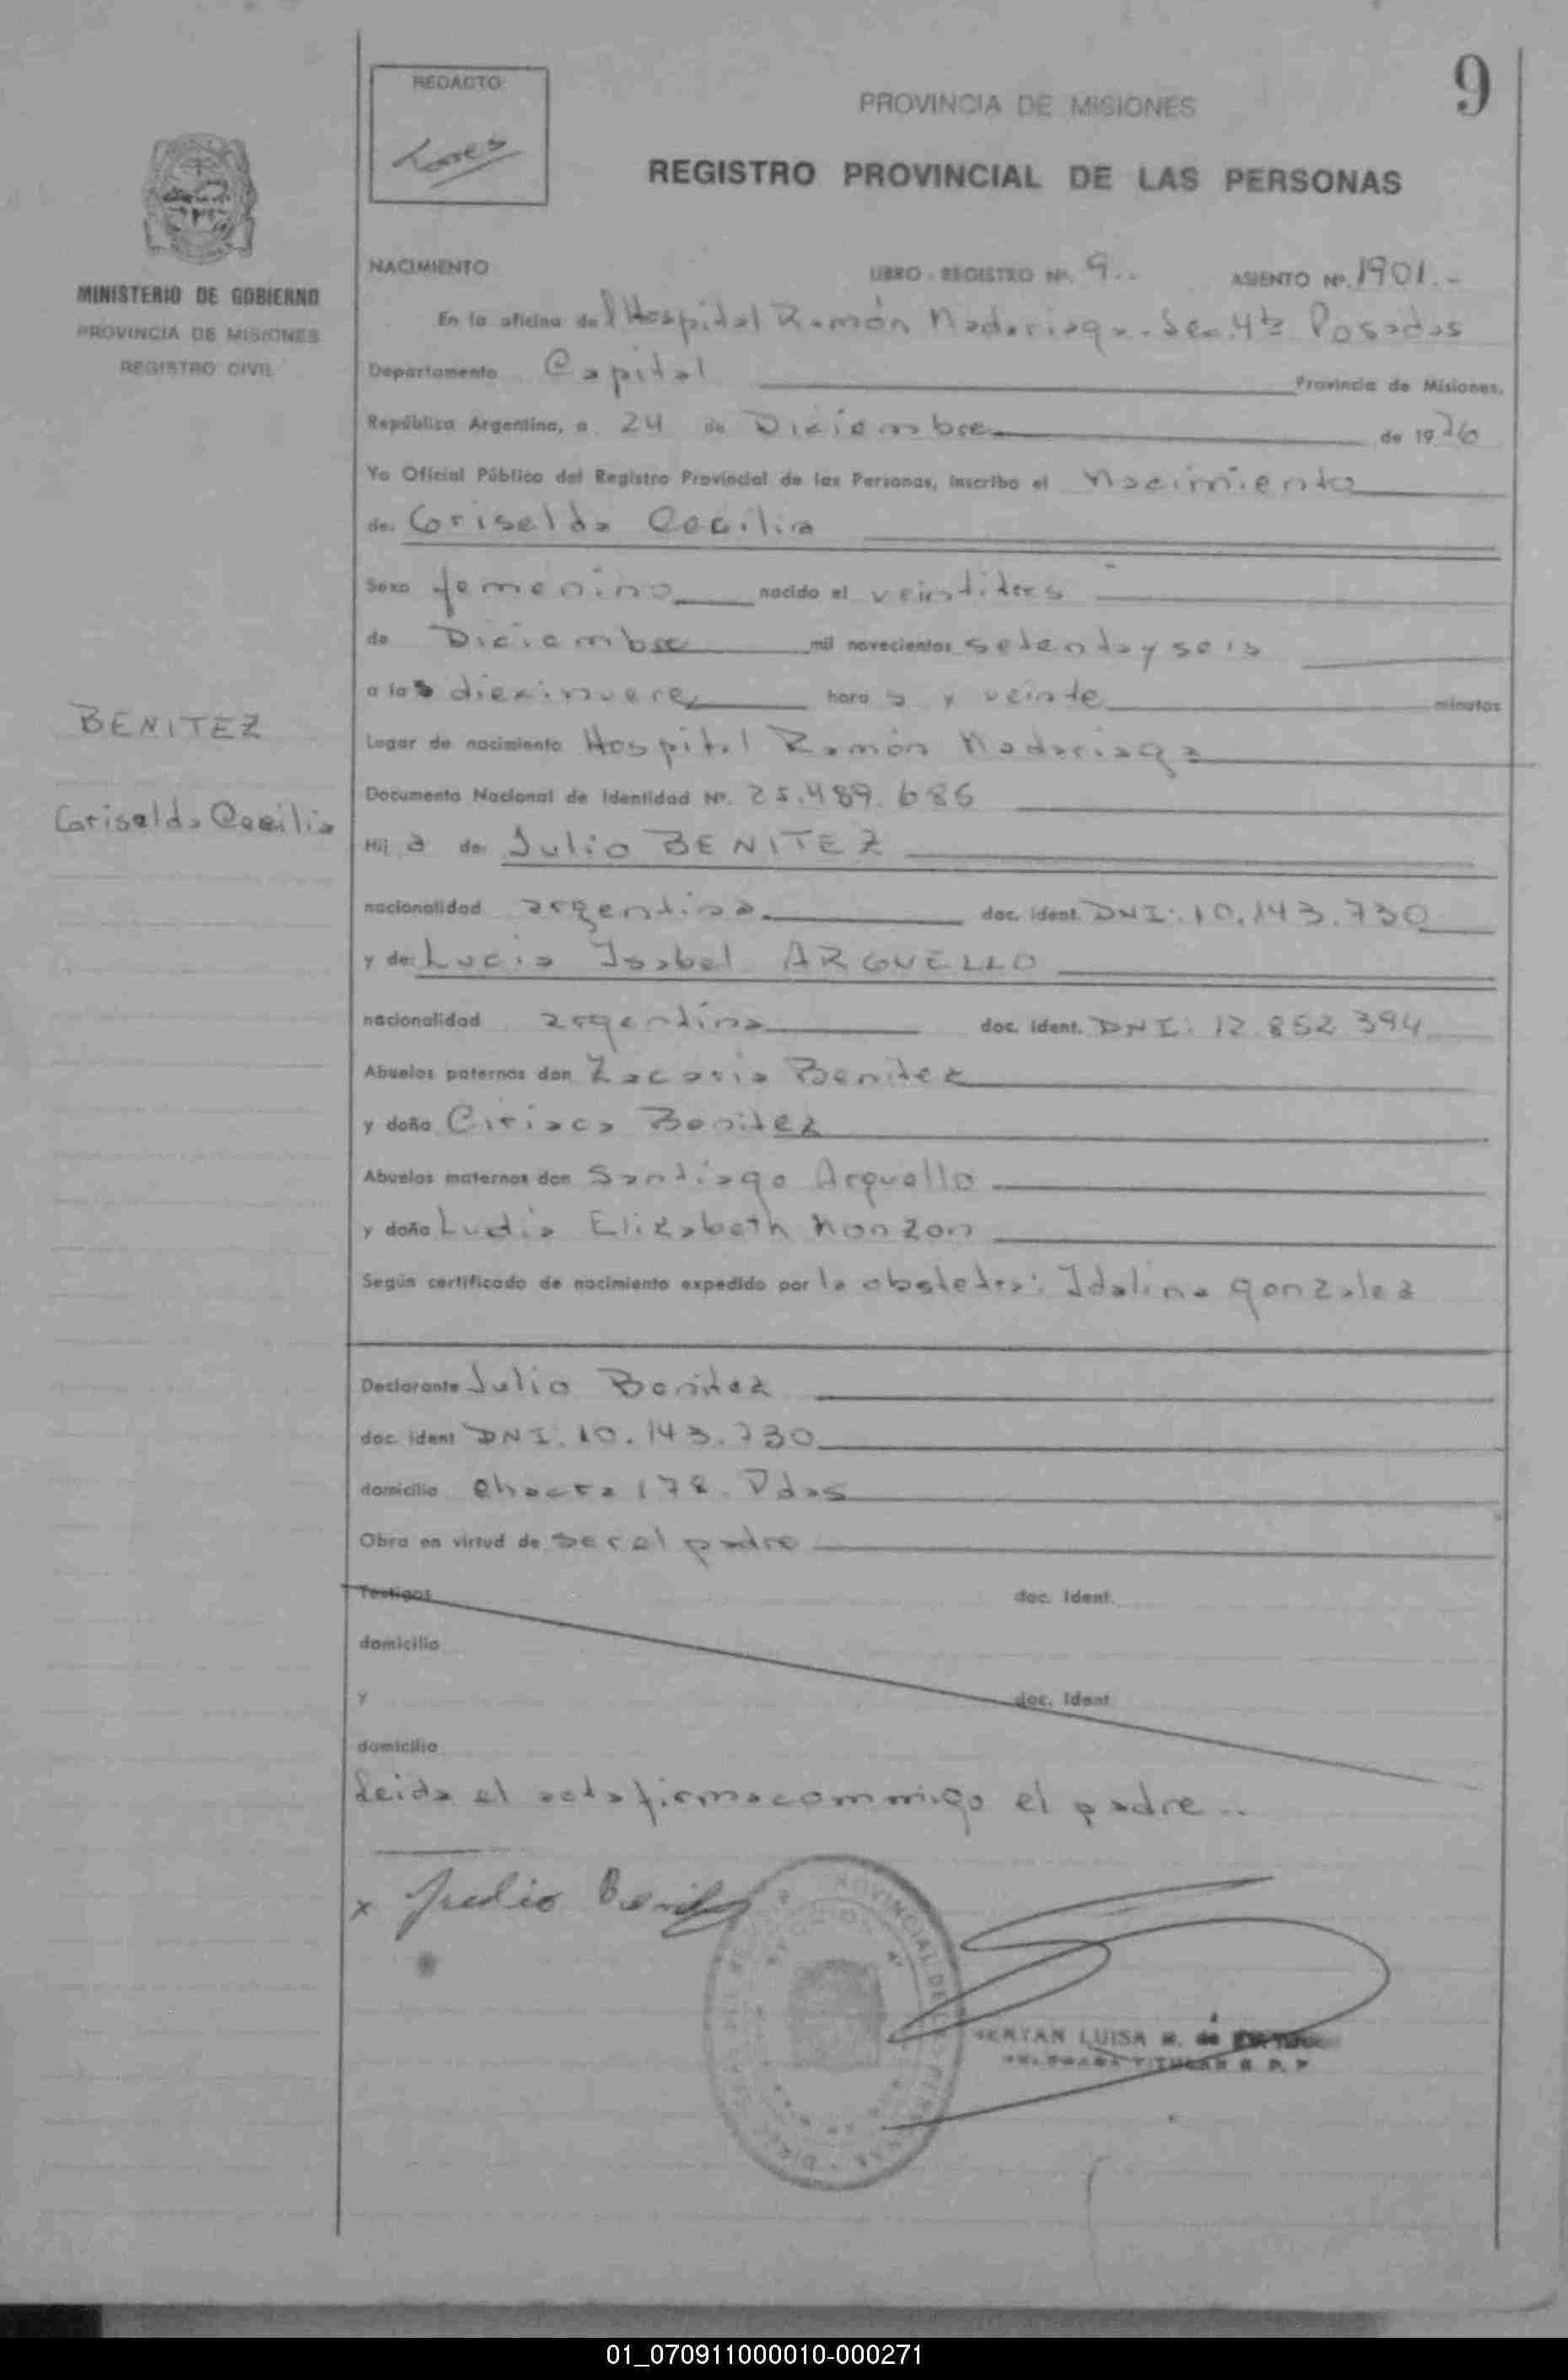 9
REDACTO
PROVINCIA DE MISIONES
REGISTRO PROVINCIAL DE LAS PERSONAS
MINISTERIO DE GOBIERNO
PROVINCIA DE MISIONES
REGISTRO CIVIL
NACIMIENTO LIBRO - REGISTRO Nº. 9.. ASIENTO Nº. 1901.-
En la oficina del Hospital Ramón Madariaga - Sec. 4ta Posadas
Departamento Capital Provincia de Misiones.
República Argentina, a 24 de Diciembre de 1976
Yo Oficial Público del Registro Provincial de las Personas, inscribo el Nacimiento
de: Griselda Cecilia
Sexo femenino nacido el veintitres
de Diciembre mil novecientos setenta y seis
a las diecinueve horas y veinte minutos
BENITEZ
Griselda Cecilia
Lugar de nacimiento Hospital Ramón Madariaga
Documento Nacional de Identidad Nº. 25.489.686
Hija de: Julio BENITEZ
nacionalidad argentina doc. ident. DNI: 10.143.730
y de: Lucia Isabel ARGUELLO
nacionalidad argentina doc. ident. DNI: 12.852.394
Abuelos paternos don Zacaria Benitez
y doña Ciriaca Benitez
Abuelos maternos don Santiago Arguello
y doña Ludia Elizabeth Monzon
Según certificado de nacimiento expedido por la obstetra: Idalina gonzalez
Declarante Julio Benitez
doc. ident. DNI. 10.143.730
domicilio Chacra 178 - Pdas
Obra en virtud de ser el padre
Testigos doc. ident.
domicilio
y doc. ident.
domicilio
Leida el acta firma conmigo el padre..
x Julio Benitez
LUISA M. de
TITULAR R. P. P
01_070911000010-000271